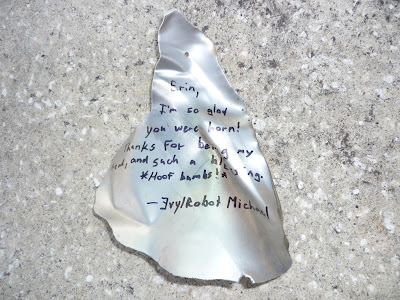 Erin,
I'm so glad
you were born!
Thanks for being my
and such a blessing.
*Hoof bumps!*
—Ivy/Robot Michael